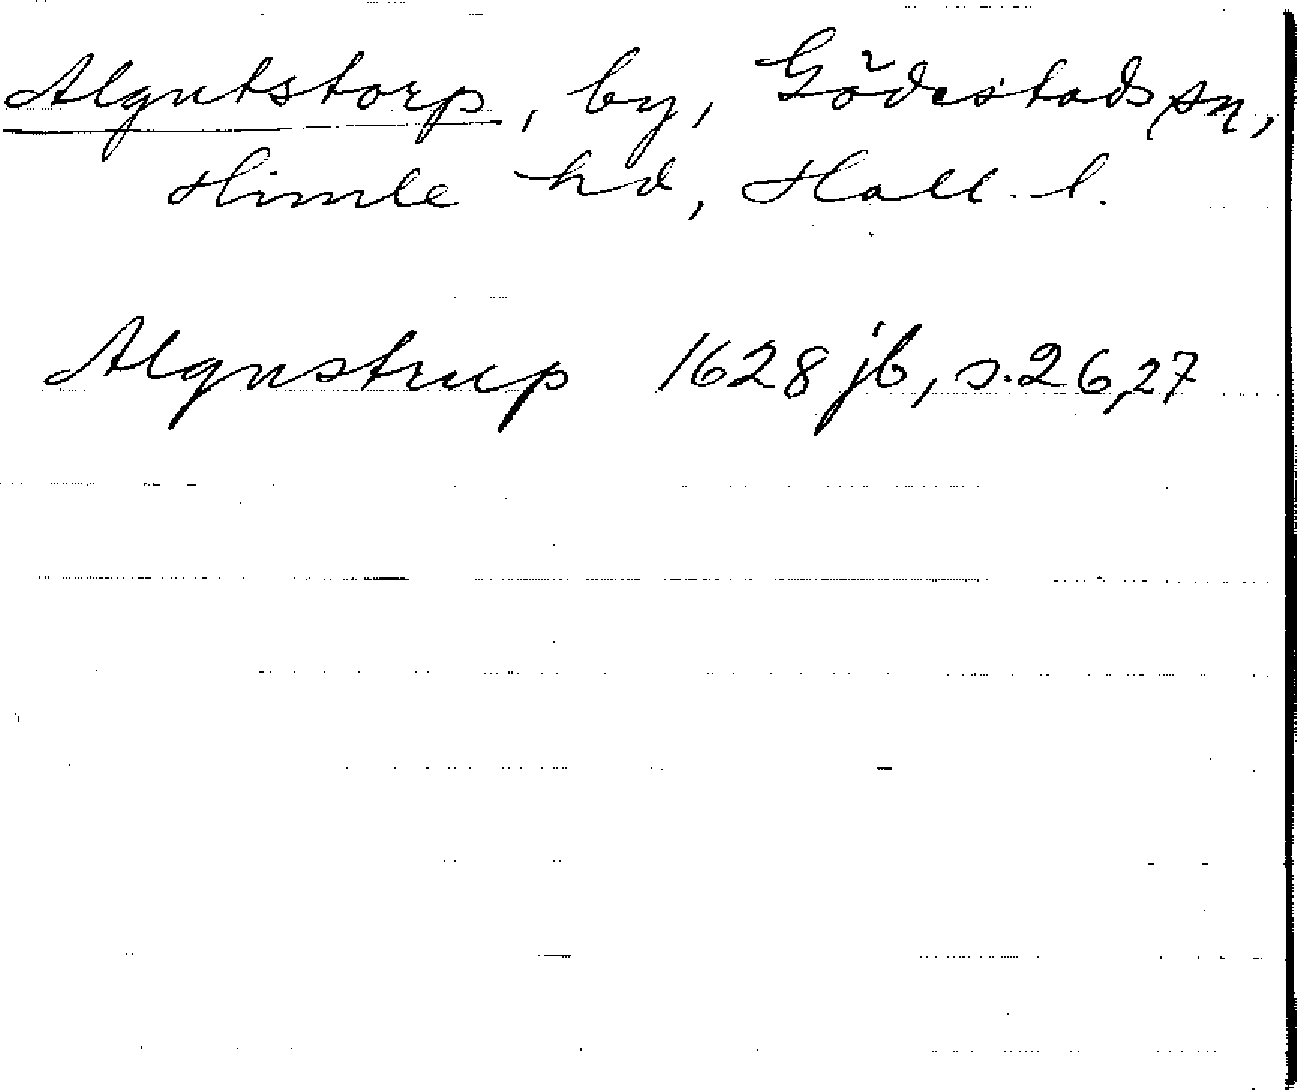 Algutstorp, by, Gödestads sn,
Himle hd, Hall. l.
Algustrup 1628 jb, s. 26, 27